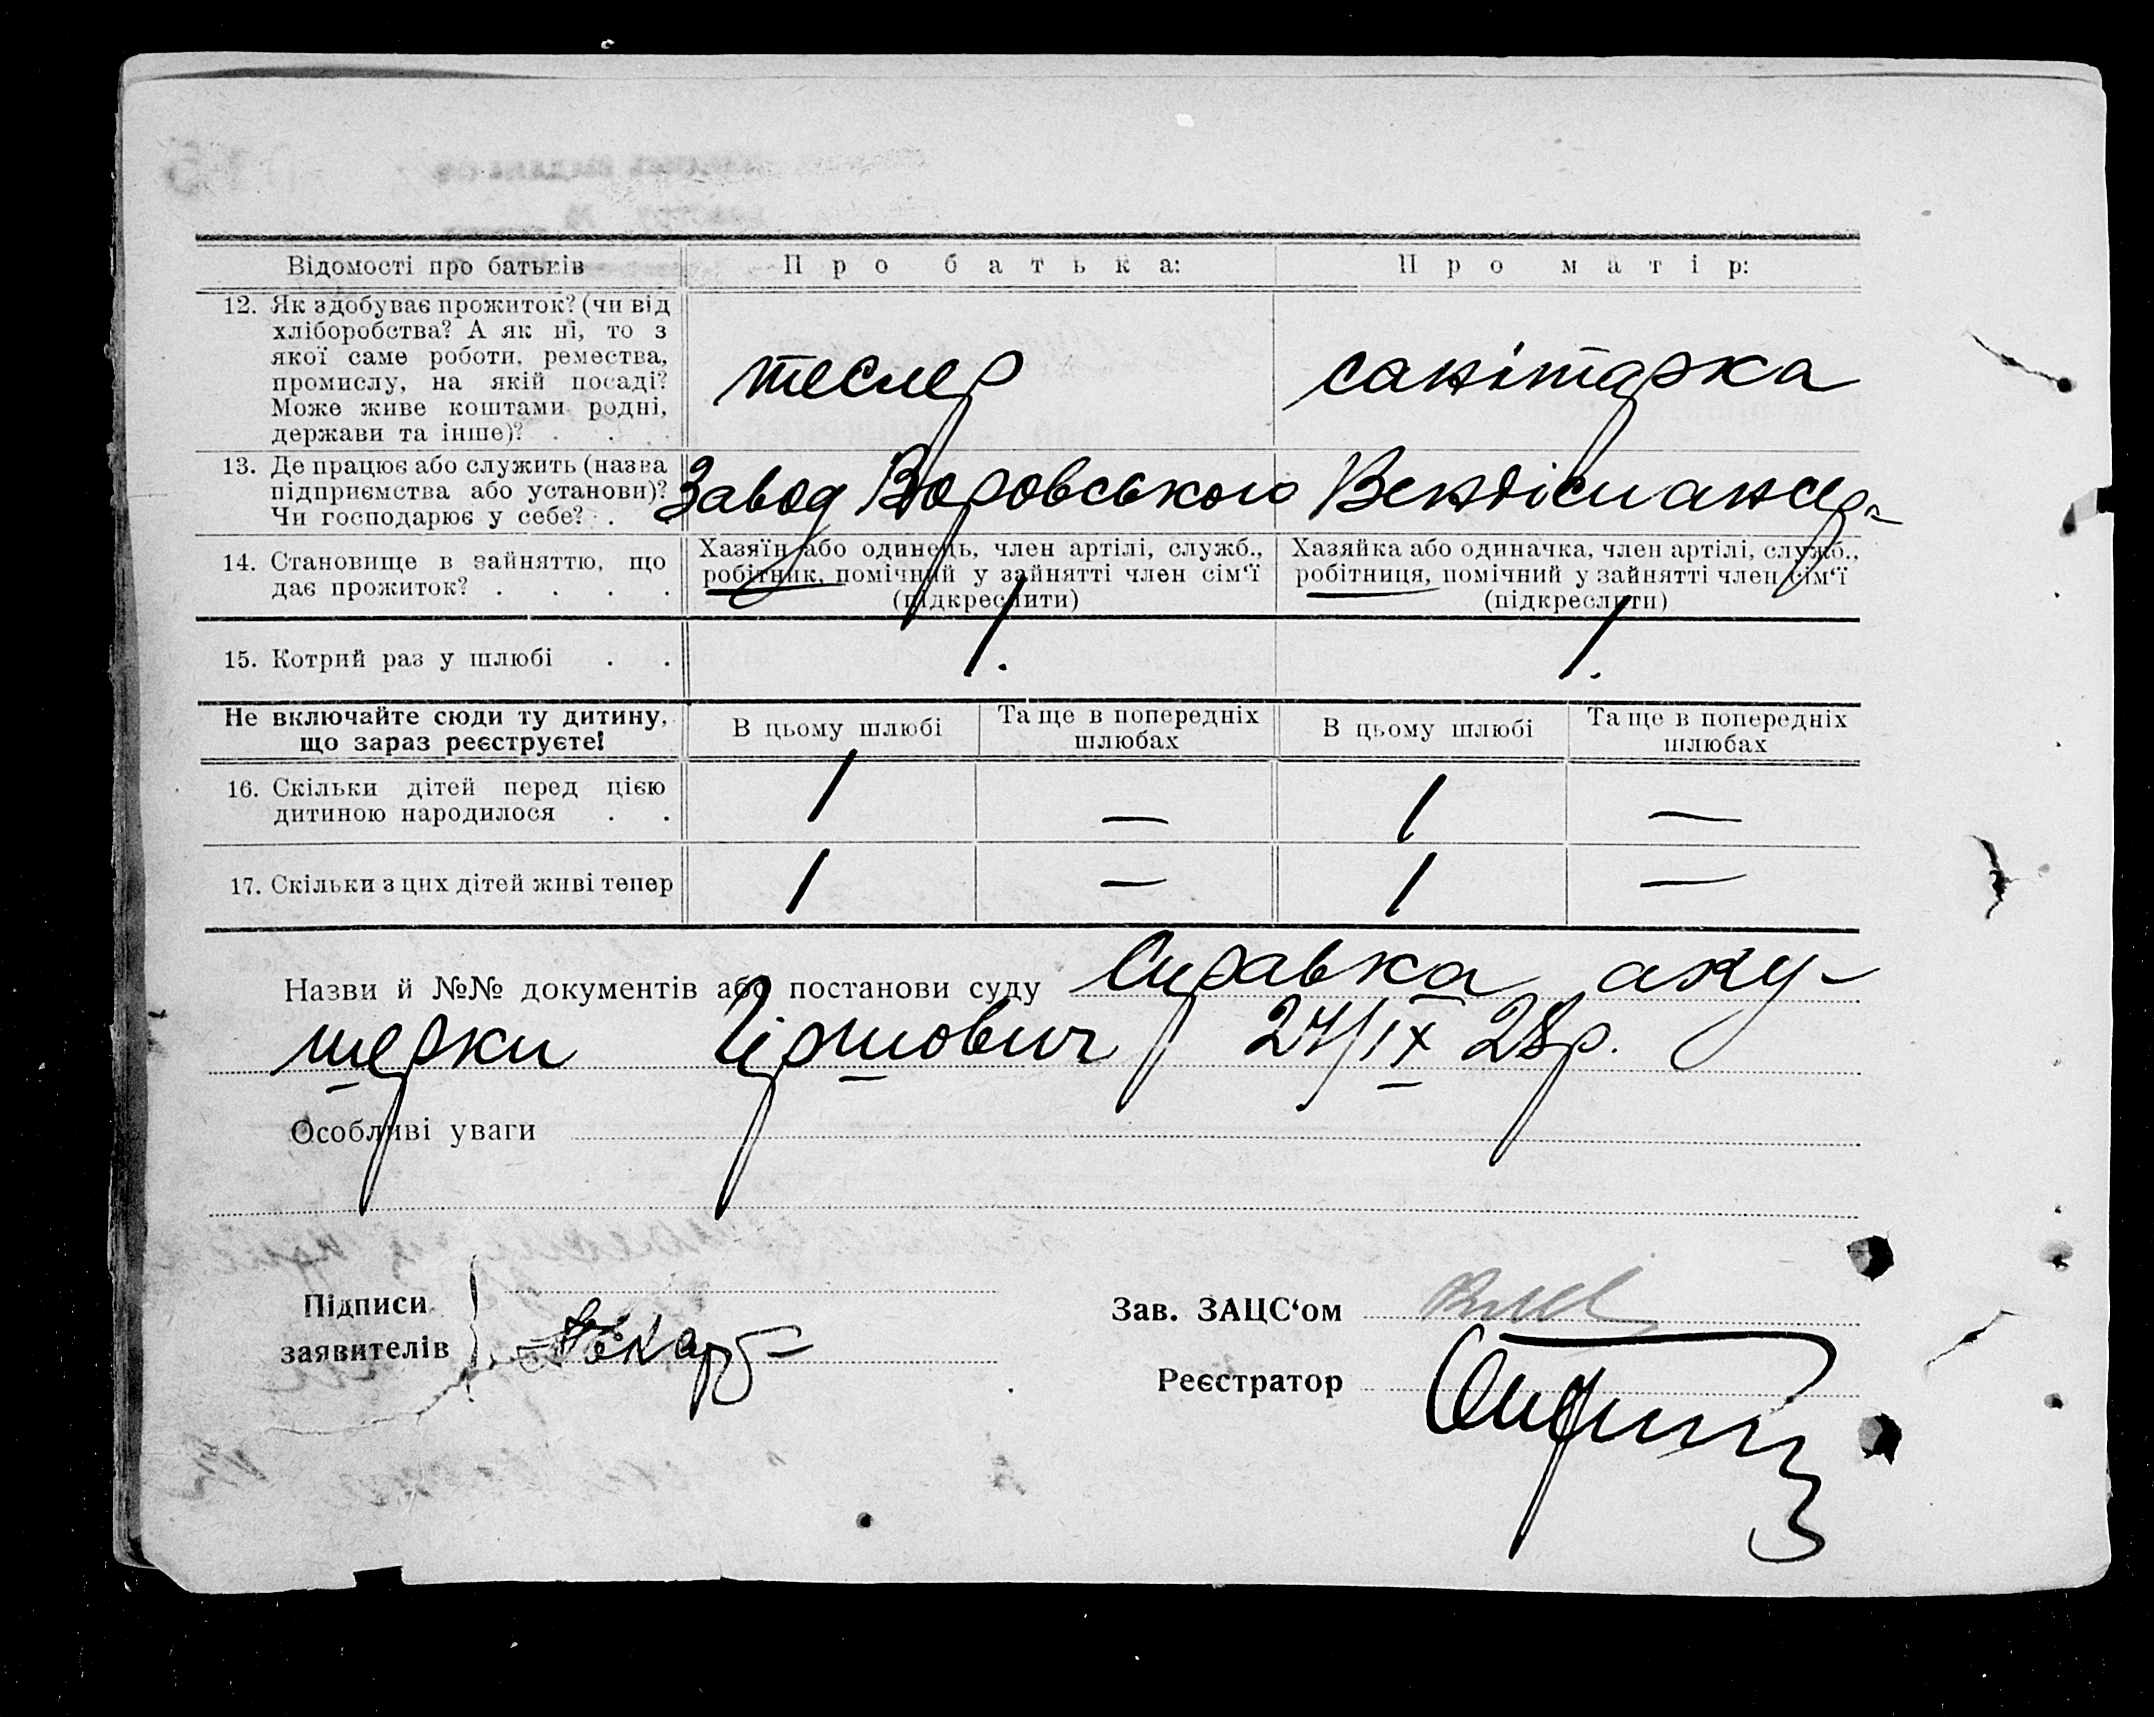 Відомості про батьків
Про батька:
Про матір:
12. Як здобуває прожиток? (чи від
хліборобства? А як ні, то з
якої саме роботи, ремества,
промислу, на якій посаді?
Може живе коштами родні,
держави та інше)? . . .
тесляр
санітарка
13. Де працює або служить (назва
підприємства або установи)?
Чи господарює у себе? . .
Завод Воровського
14. Становище в зайняттю, що
дає прожиток? . . . .
Хазяїн або одинець, член артілі, служб.,
робітник, помічний у зайнятті член сім'ї
(підкреслити)
Хазяйка або одиначка, член артілі, служб.,
робітниця, помічний у зайнятті член сім'ї
(підкреслити)
15. Котрий раз у шлюбі . .
1.
1.
Не включайте сюди ту дитину,
що зараз реєструєте!
В цьому шлюбі
Та ще в попередніх
шлюбах
В цьому шлюбі
Та ще в попередніх
шлюбах
16. Скільки дітей перед цією
дитиною народилося . .
1
—
1
—
17. Скільки з цих дітей живі тепер
1
—
1
—
Назви й №№ документів або постанови суду Справка аку-
шерки Гіршович 27/IX 28р.
Особливі уваги
Підписи
заявителів
Зав. ЗАЦС'ом
Реєстратор